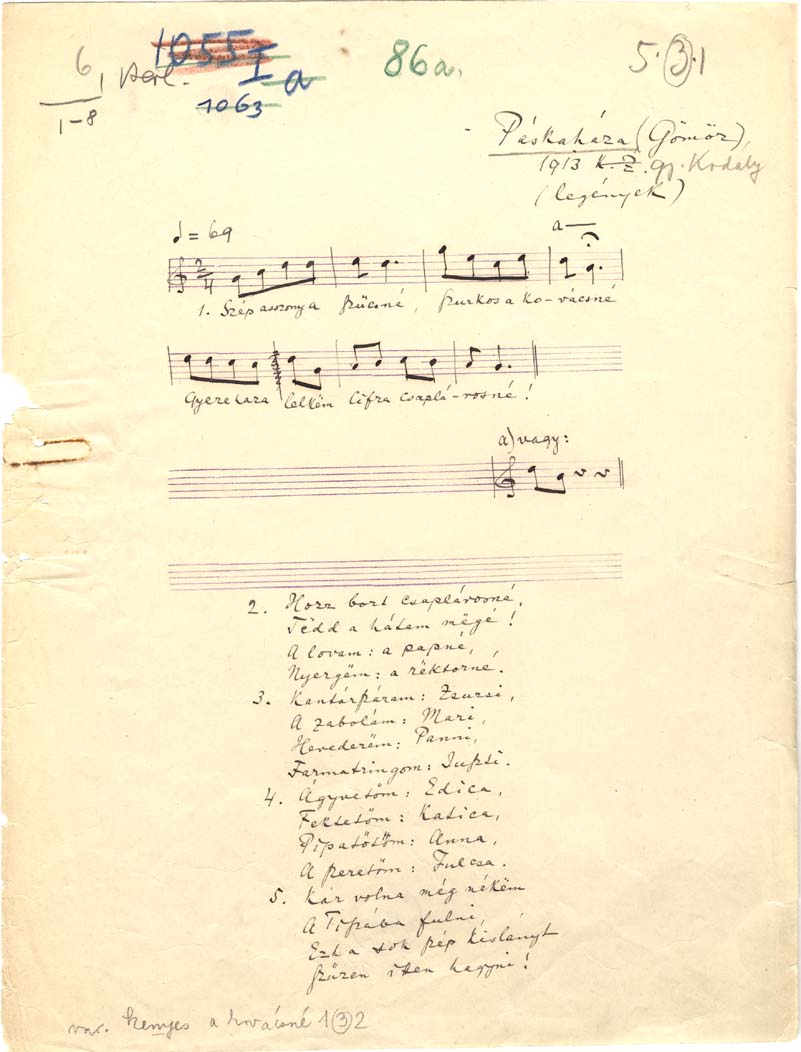 6
1-8
1055 I a
1063
86a.
5.3.1
Páskaháza (Gömör),
1913 K. Z. gy. Kodály
(legények)
a —
= 69
2
4
1. Szép asszony a szűcsné, szurkos a ko-vácsné
Gyere haza lelkëm cifra csaplá-rosné!
a) vagy:
2. Hozz bort csaplárosné,
Tëdd a hátam mëgé!
A lovam: a papné,
Nyergëm: a rëktorné.
3. Kantárszáram: Zsuzsi,
A zabolám: Mari,
Hevederëm: Panni,
Farmatringom: Juszi.
4. Ágyvetőm: Edica,
Fektetőm: Katica,
Pipatötőm: Anna,
A szeretőm: Julcsa.
5. Kár volna még nékëm
A Tiszába fulni,
Ezt a sok szép kislányt
Szűzen itten hagyni!
var. Kenyes a kovácsné 1 3 2